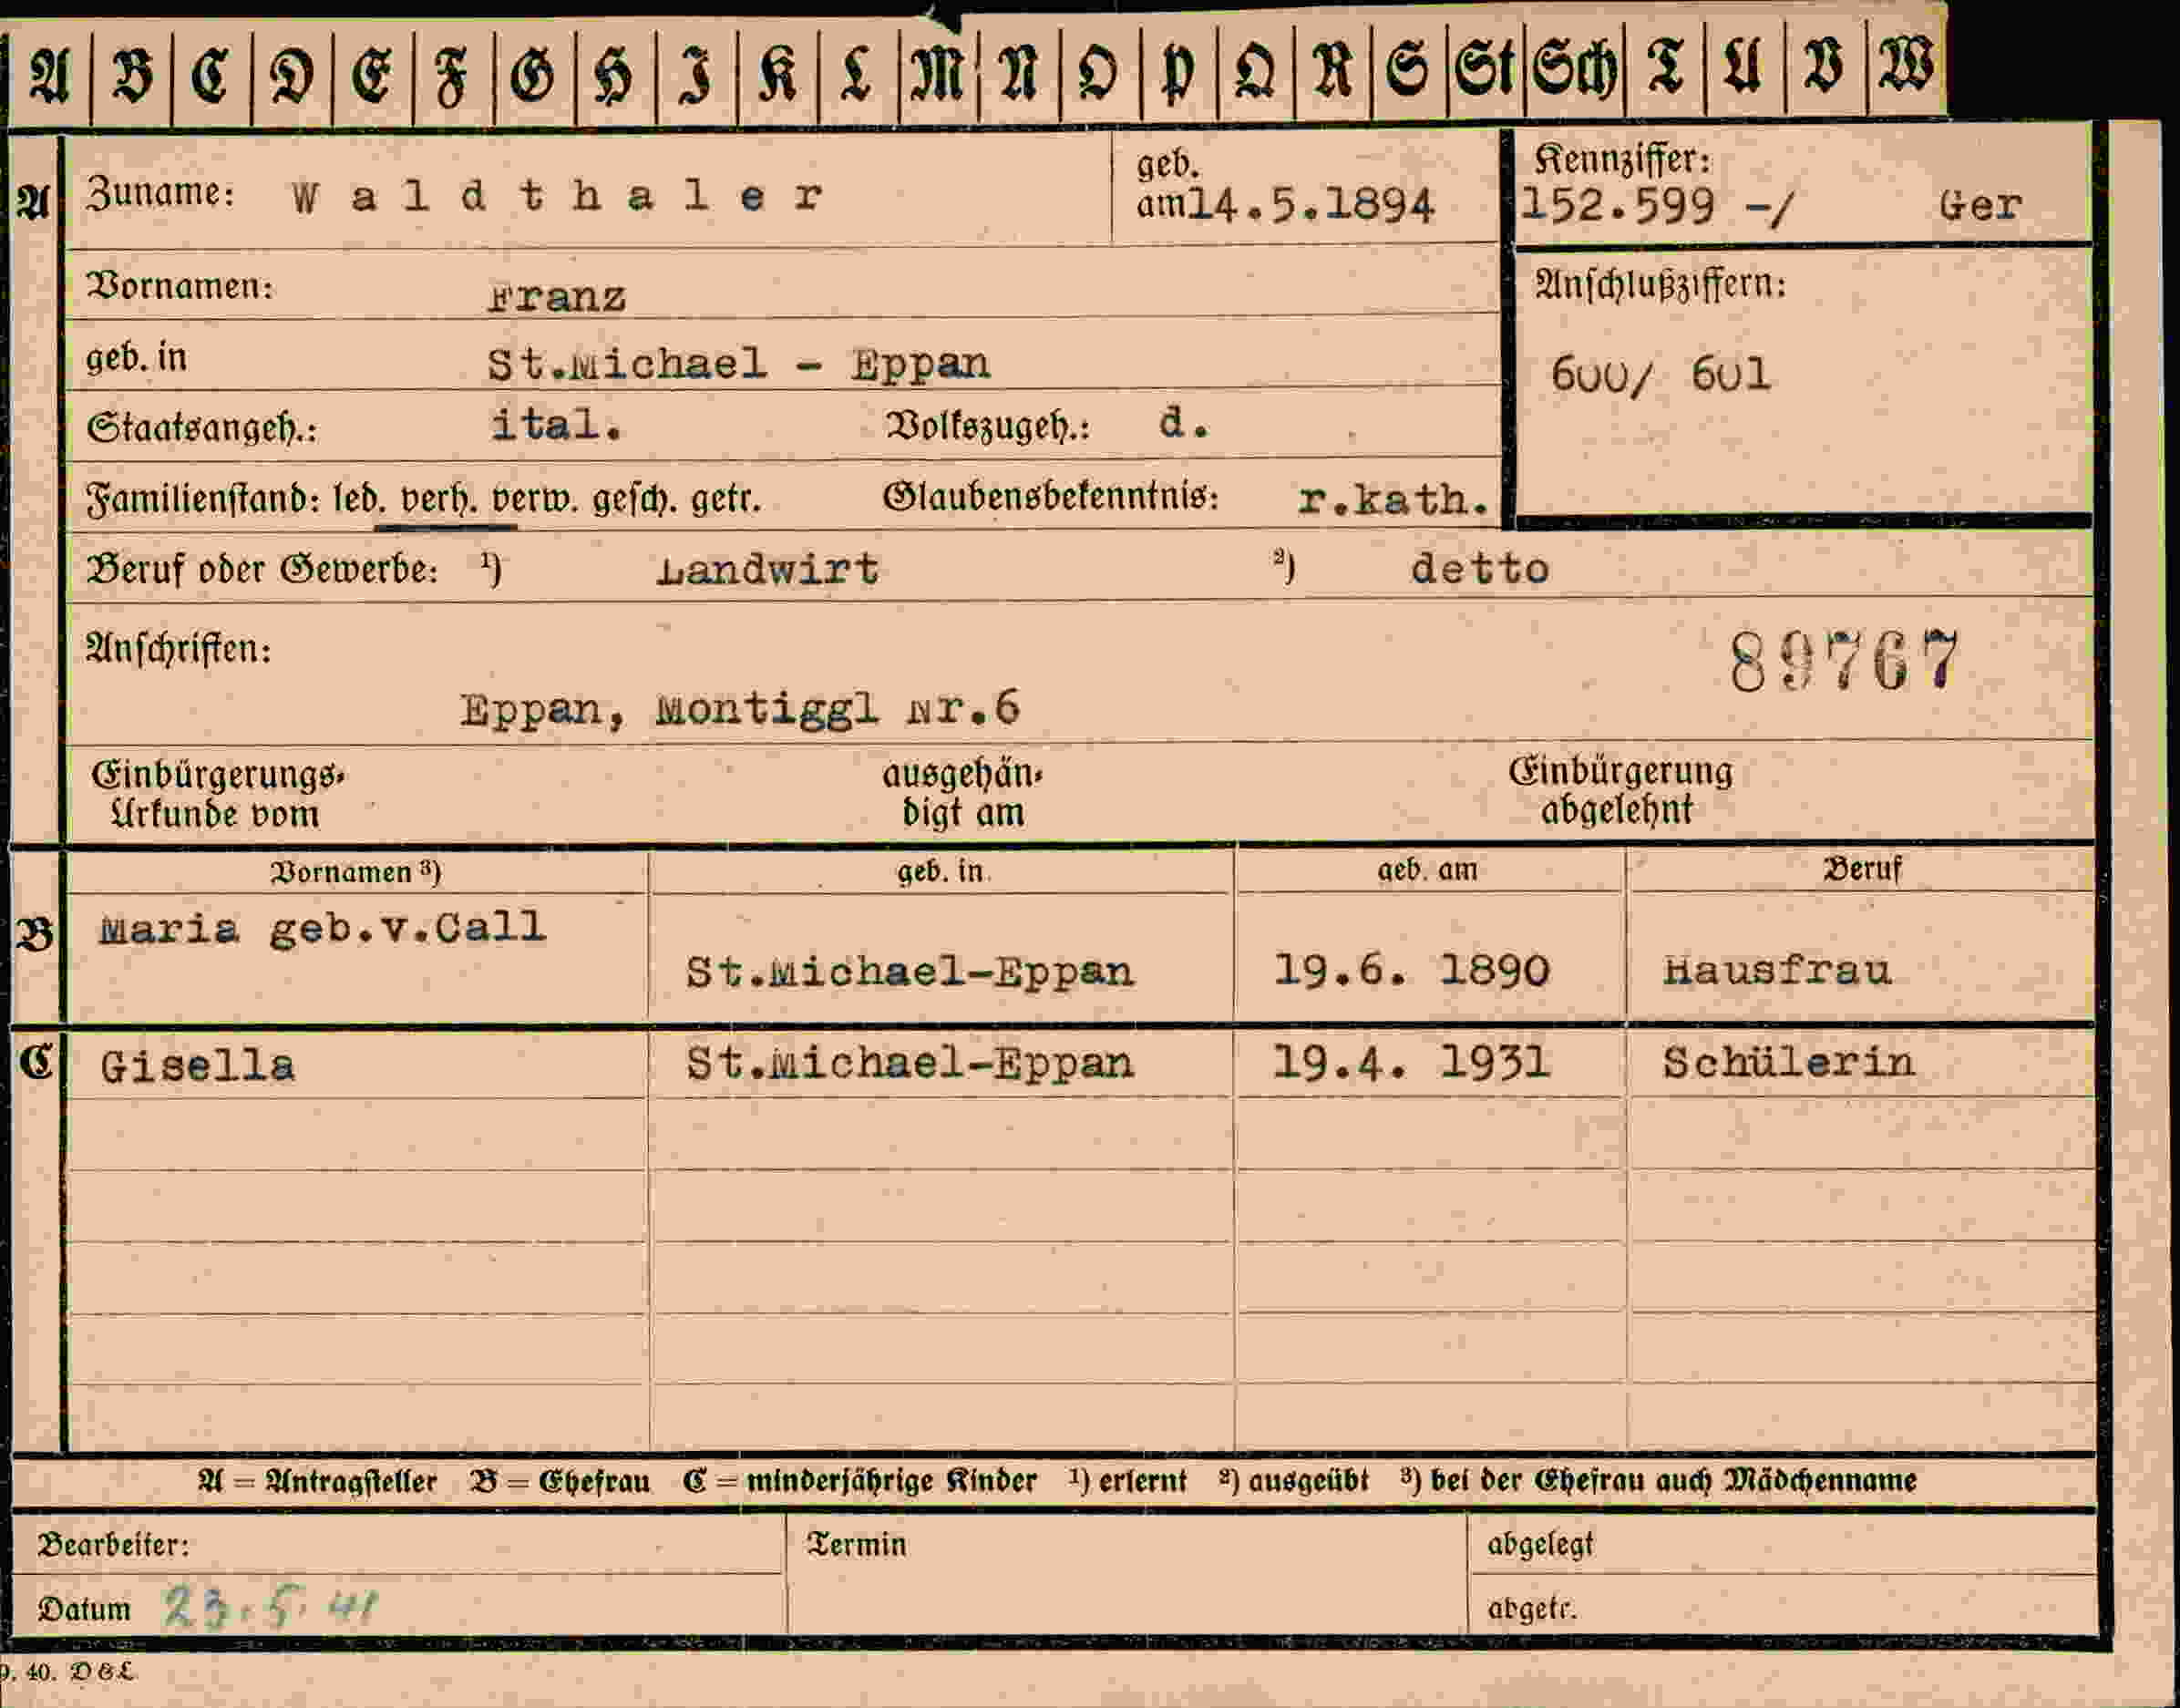 A B C D E F G H I K L M N O P Q R S St Sch T U V W
A Zuname: Waldthaler geb. am 14.5.1894 Kennziffer: 152.599 -/ Ger
Vornamen: Franz Anschlußziffern:
geb. in St.Michael - Eppan 600/ 601
Staatsangeh.: ital. Volkszugeh.: d.
Familienstand: led. verh. verw. gesch. getr. Glaubensbekenntnis: r.kath.
Beruf oder Gewerbe: 1) Landwirt 2) detto
Anschriften: 89767
Eppan, Montiggl Nr.6
Einbürgerungs- ausgehän- Einbürgerung
Urkunde vom digt am abgelehnt
Vornamen 3) geb. in geb. am Beruf
B Maria geb.v.Call
St.Michael-Eppan 19.6. 1890 Hausfrau
C Gisella St.Michael-Eppan 19.4. 1931 Schülerin
A = Antragsteller B = Ehefrau C = minderjährige Kinder 1) erlernt 2) ausgeübt 3) bei der Ehefrau auch Mädchenname
Bearbeiter: Termin abgelegt
Datum 23.5.41 abgetr.
40. D&L